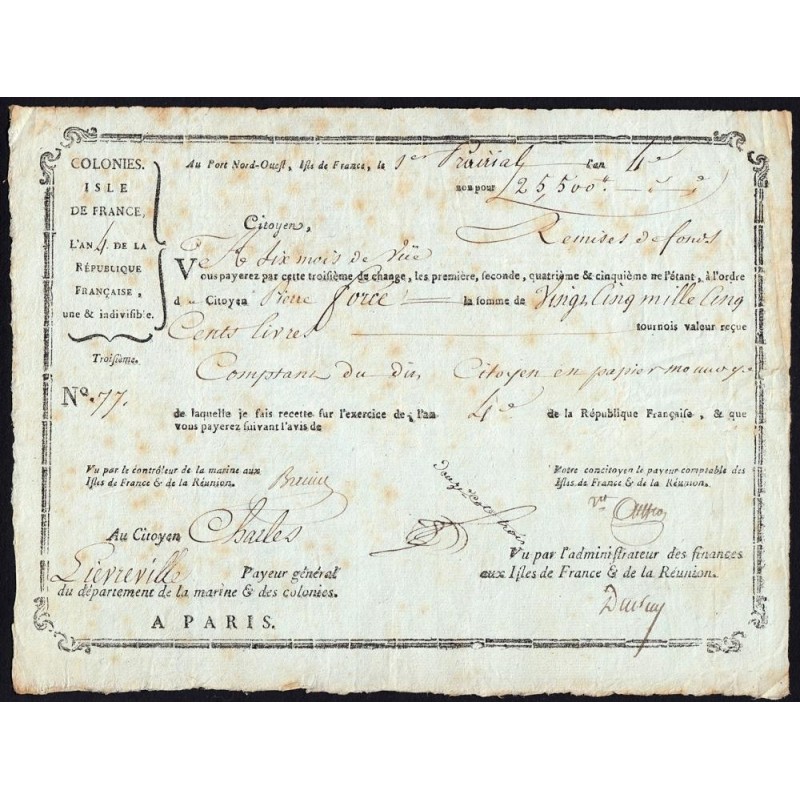 COLONIES.
ISLE
DE FRANCE,
L'AN 4. DE LA
RÉPUBLIQUE
FRANÇAISE,
une & indivisible.
Troisième.
No. 77.
Au Port Nord-Ouest, Isle de France, le 1er Prairial l'an 4e
bon pour 25,500lt
Remises de fonds
Citoyen,
A Six mois de Vüe
Vous payerez par cette troisième de change, les première, seconde, quatrième & cinquième ne l'étant, à l'ordre
d u Citoyen Pierre force la somme de Vingt Cinq mille Cinq
Cents livres tournois valeur reçue
Comptant du dit Citoyen en papier monnoye
de laquelle je fais recette sur l'exercice de l'an 4e de la République Française, & que
vous payerez suivant l'avis de
Vu par le contrôleur de la marine aux
Isles de France & de la Réunion.
Votre concitoyen le payeur comptable des
Isles de France & de la Réunion.
Au Citoyen Charles
Lievreville Payeur général
du département de la marine & des colonies.
A PARIS.
Vu par l'administrateur des finances
aux Isles de France & de la Réunion.